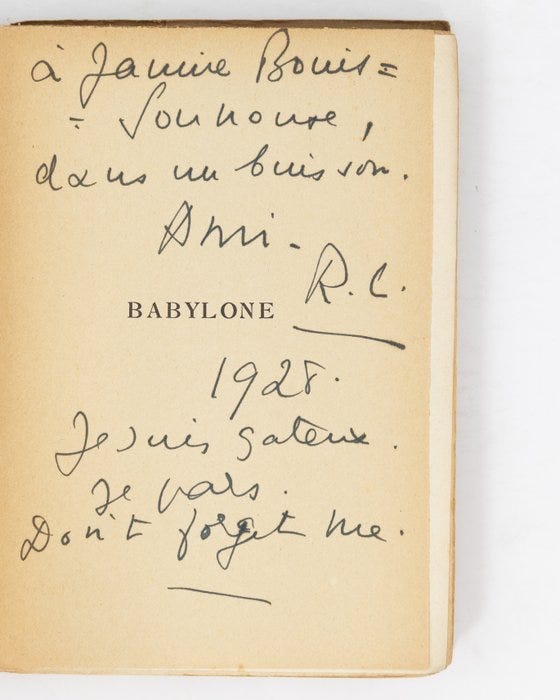 à Janine Bouis=
= Sounouse,
dans un buisson.
Ami -
R. C.
BABYLONE
1928.
Je suis gateux.
Je pars.
Don't forget me.